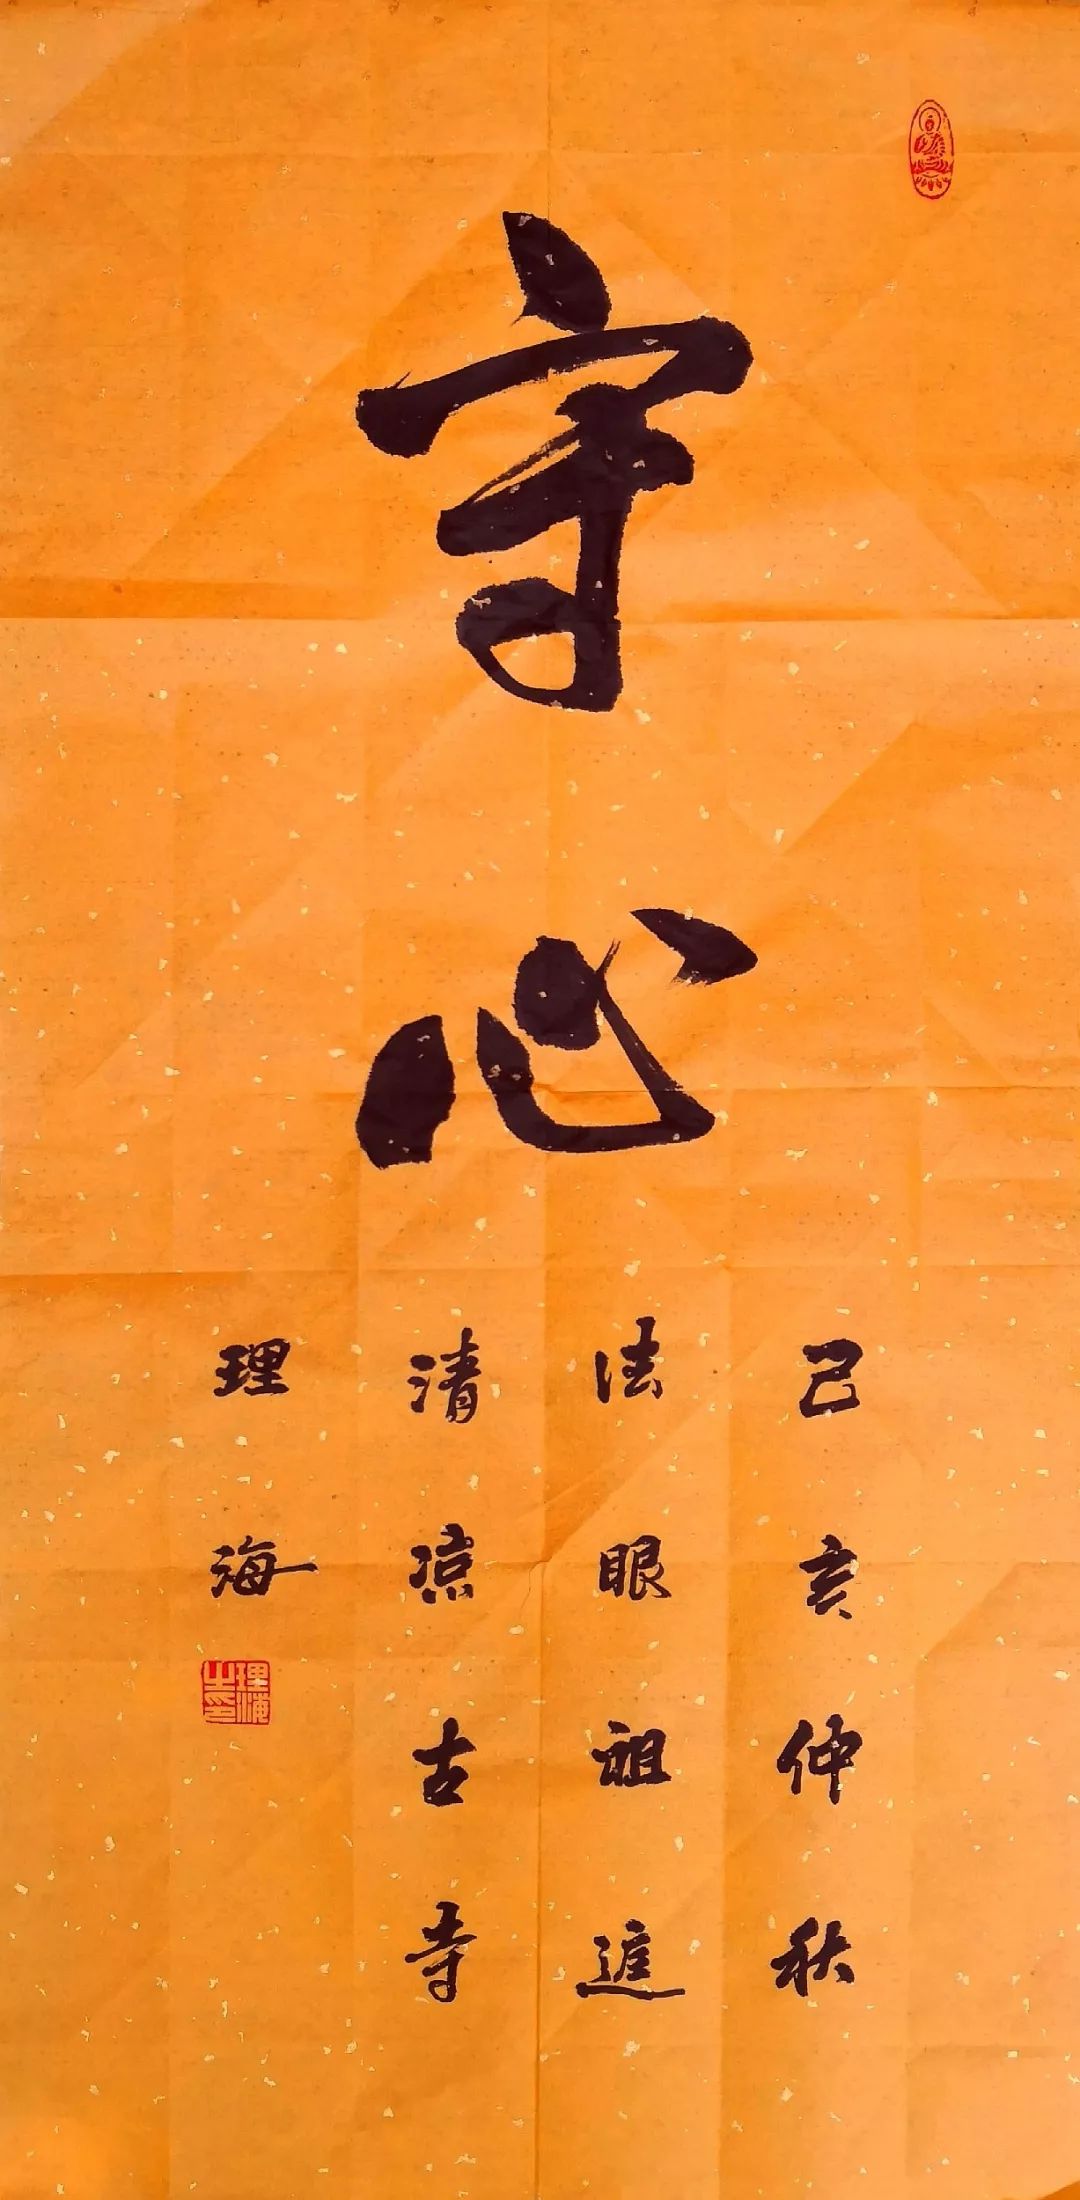 守心
己亥仲秋
法眼祖庭
清凉古寺
理海
理海之印